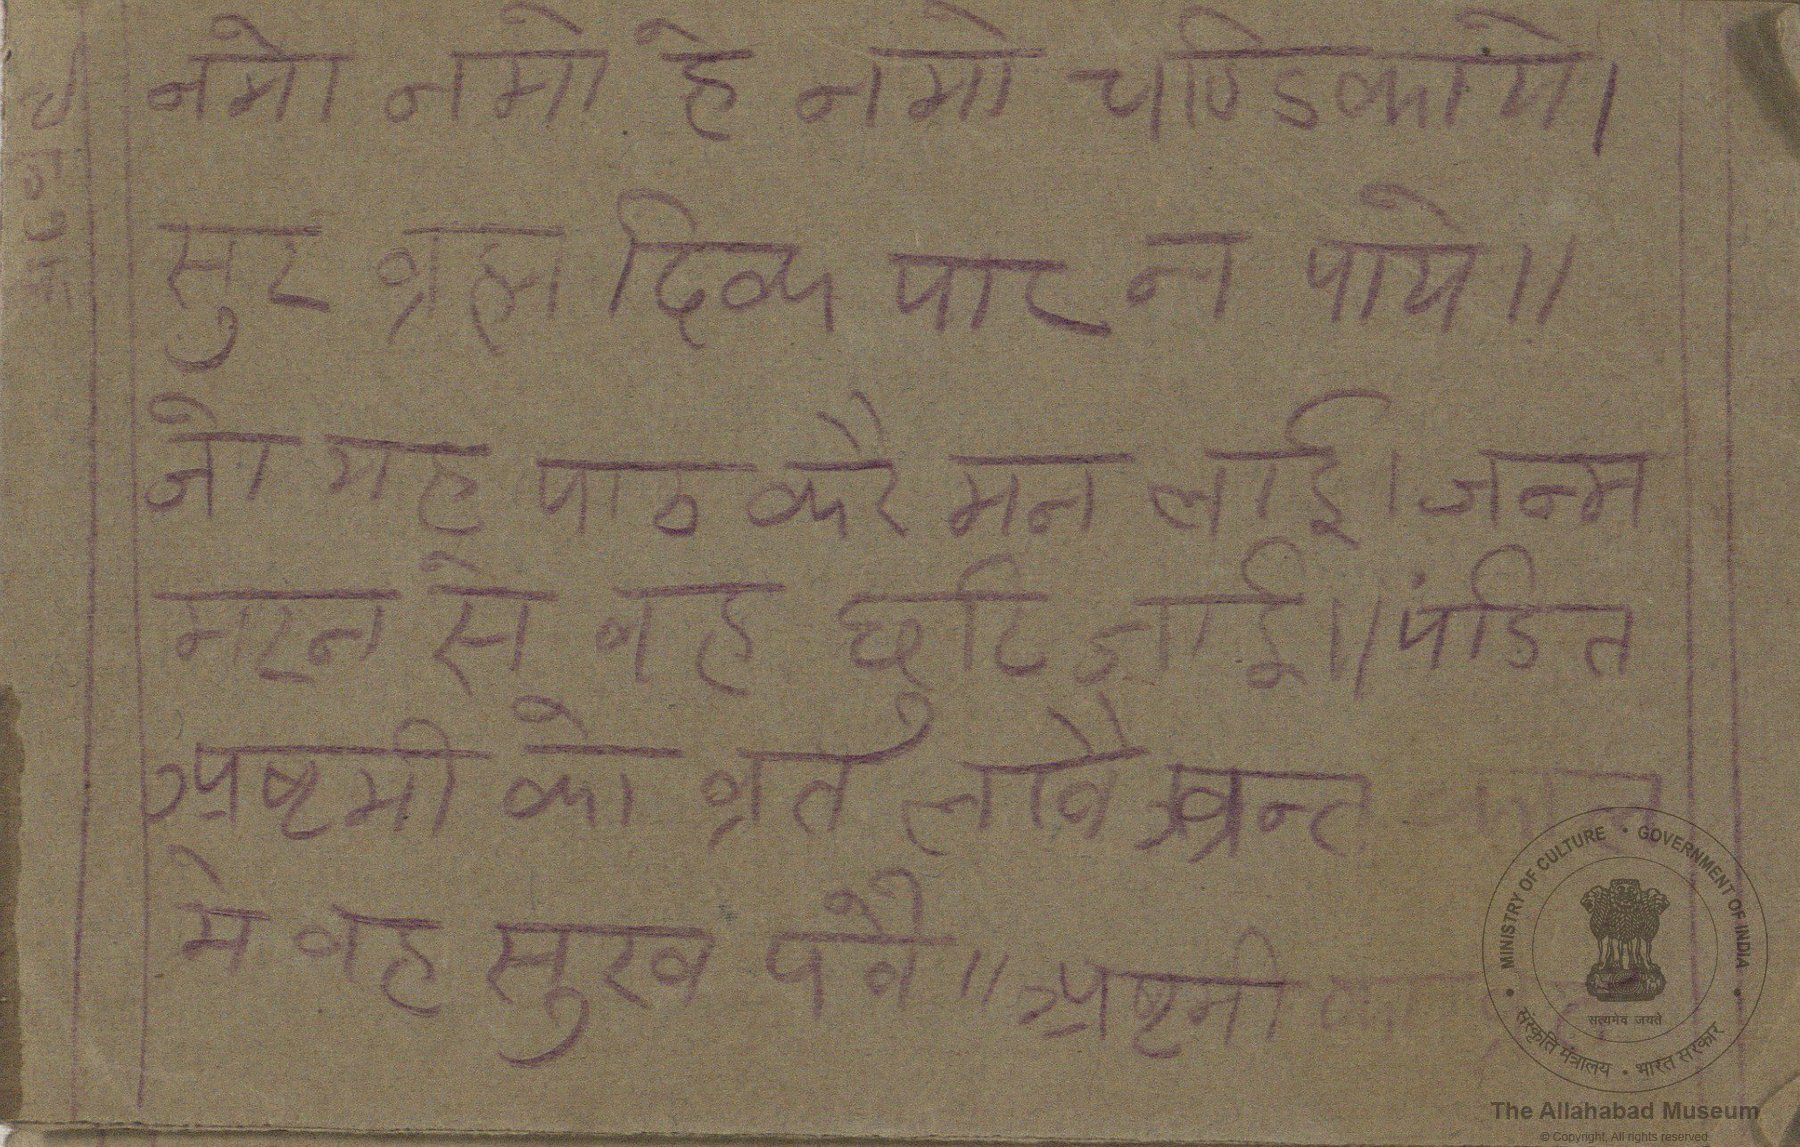 नमो नमो हे नमो चण्डिकाये।
सुर ब्रह्म दिव्य पार न पाये॥
जो यह पाठ करै मन लाई। जन्म
मरन से वह छुटि जाई॥ पंडित
अष्टमी को ब्रत लावै अन्त काल
मे वह सुख पवै॥ अष्टमी का
MINISTRY OF CULTURE • GOVERNMENT OF INDIA
सत्यमेव जयते
संस्कृति मंत्रालय • भारत सरकार
The Allahabad Museum
© Copyright, All rights reserved.